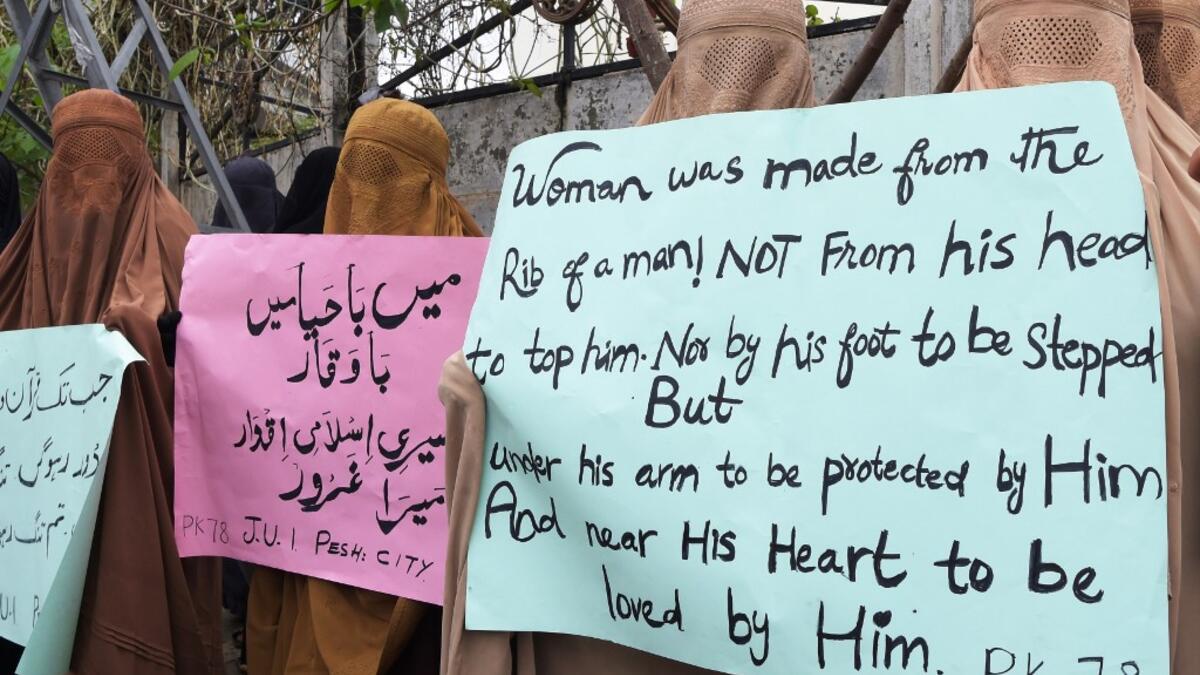 Woman was made from the
Rib of a man! NOT From his head
to top him. Nor by his foot to be Stepped
But
under his arm to be protected by Him
And near His Heart to be
loved by Him.
PK 78
میں بَا حَیا میں
بَا وَقَار
میری اِسْلَامِی اِقْوَار
مَیرَا غَرُور
PK78 J.U.I. PESH: CITY.
جب تک قرآن
دُور رہوگیں
تم تنگ